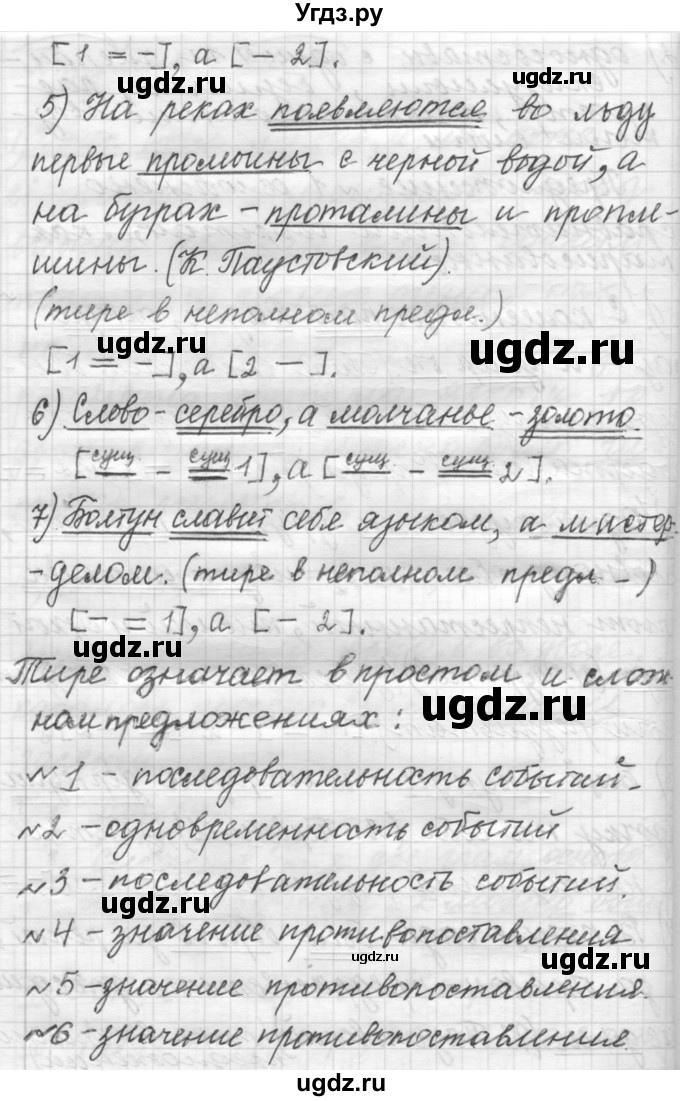 Угдз.ру
[1 = -], а [- 2].
ugdz.ru ugdz.ru
5) На реках появляются во льду
первые промоины с черной водой, а
на буграх - проталины и пропле-
шины. (К. Паустовский).
(тире в неполном предл.)
ugdz.ru ugdz.ru
[1 = -], а [2 -].
6) Слово - серебро, а молчанье - золото.
[сущ - сущ 1], а [сущ - сущ 2].
7) Болтун славит себя языком, а мастер-
- делом. (тире в неполном предл. -)
[- = 1], а [- 2].
ugdz.ru
Тире означает в простом и слож-
ном предложениях:
ugdz.ru
№1 - последовательность событий.
№2 - одновременность событий
№3 - последовательность событий.
ugdz.ru
№4 - значение противопоставления
ugdz.ru ugdz.ru
№5 - значение противопоставления.
№6 - значение противопоставления.
ugdz.ru